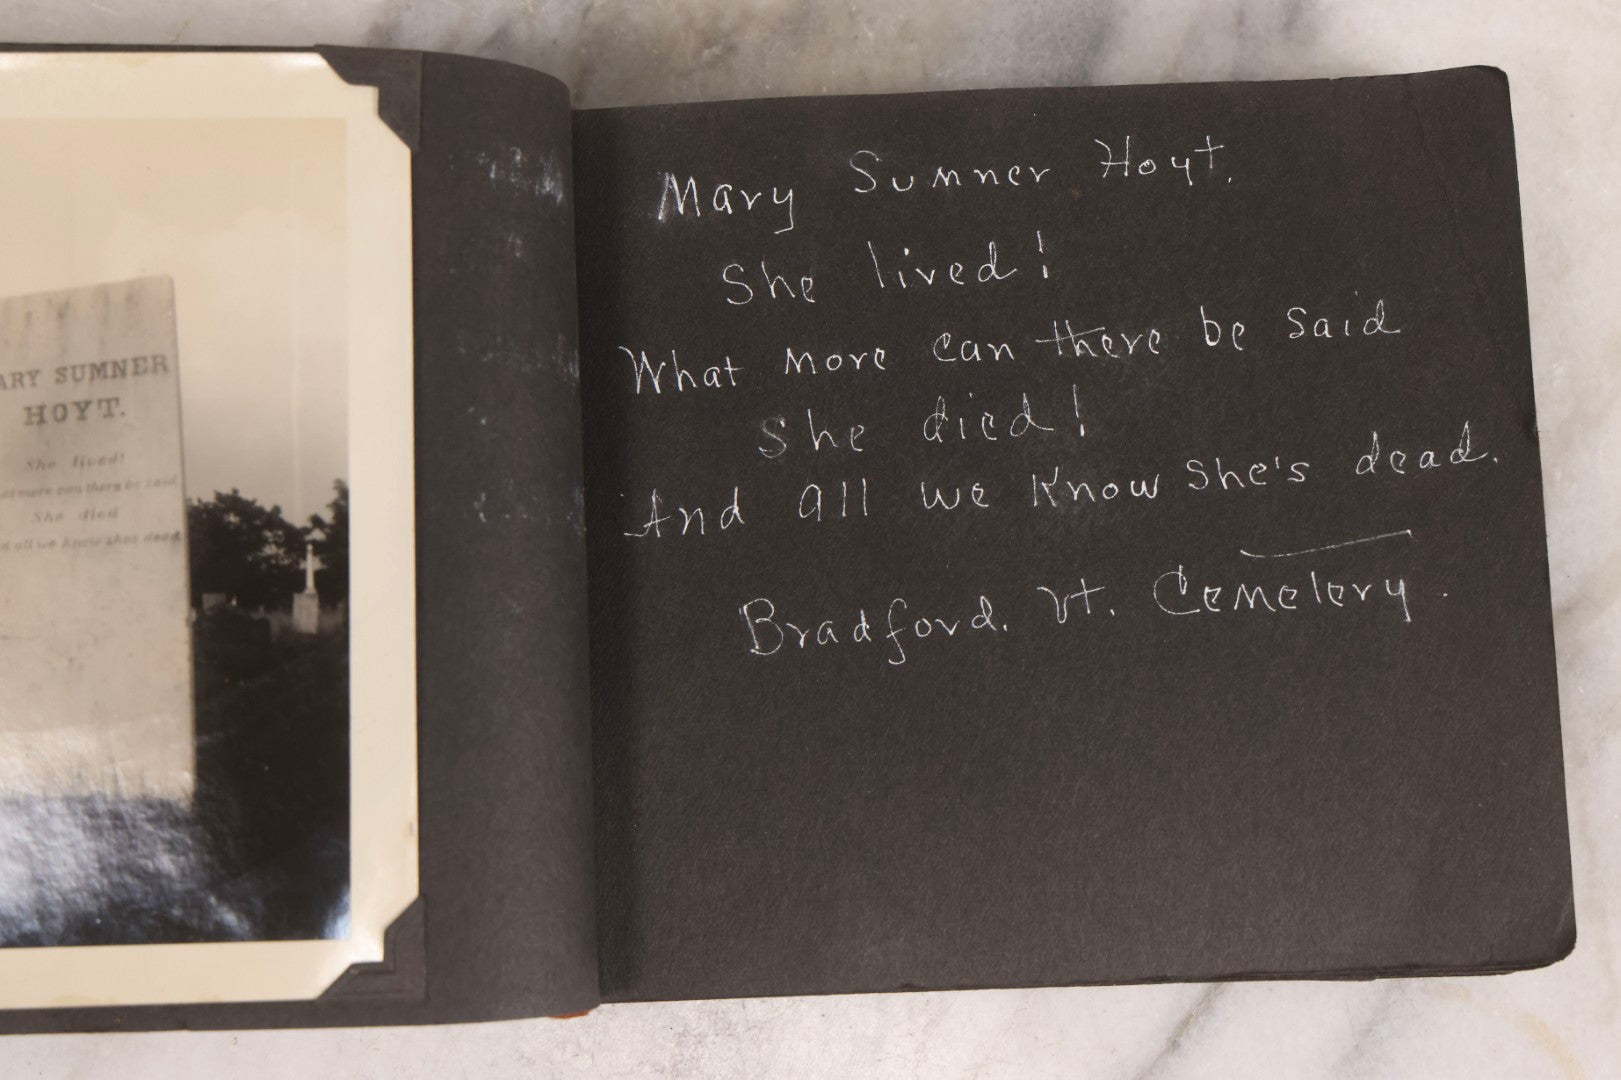 ARY SUMNER
HOYT.
She lived!
at more can there be said
She died
d all we know shes dead
Mary Sumner Hoyt.
She lived!
What more can there be said
She died!
And all we know She's dead.
Bradford. Vt. Cemetery.